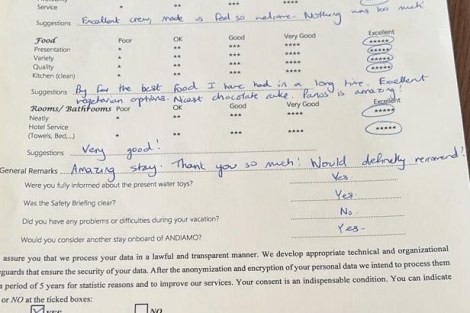 Service * ** *** ****
Suggestions Excellent crew, made us feel so welcome. Nothing was too much
Food Poor OK Good Very Good Excellent
Presentation * ** *** **** *****
Variety * ** *** **** *****
Quality * ** *** **** *****
Kitchen (clean) * ** *** **** *****
Suggestions By far the best food I have had in a long time. Excellent
vegetarian options. Nicest chocolate cake. Panos is amazing!
Rooms/ Bathrooms Poor OK Good Very Good Excellent
Neatly * ** *** **** *****
Hotel Service
(Towels, Bed,...) * ** *** **** *****
Suggestions Very good!
General Remarks Amazing stay. Thank you so much! Would definetly recommend!
Were you fully informed about the present water toys? Yes.
Was the Safety Briefing clear? Yes.
Did you have any problems or difficulties during your vacation? No.
Would you consider another stay onboard of ANDIAMO? Yes.
assure you that we process your data in a lawful and transparent manner. We develop appropriate technical and organizational
guards that ensure the security of your data. After the anonymization and encryption of your personal data we intend to process them
a period of 5 years for statistic reasons and to improve our services. Your consent is an indispensable condition. You can indicate
or NO at the ticked boxes:
YES NO